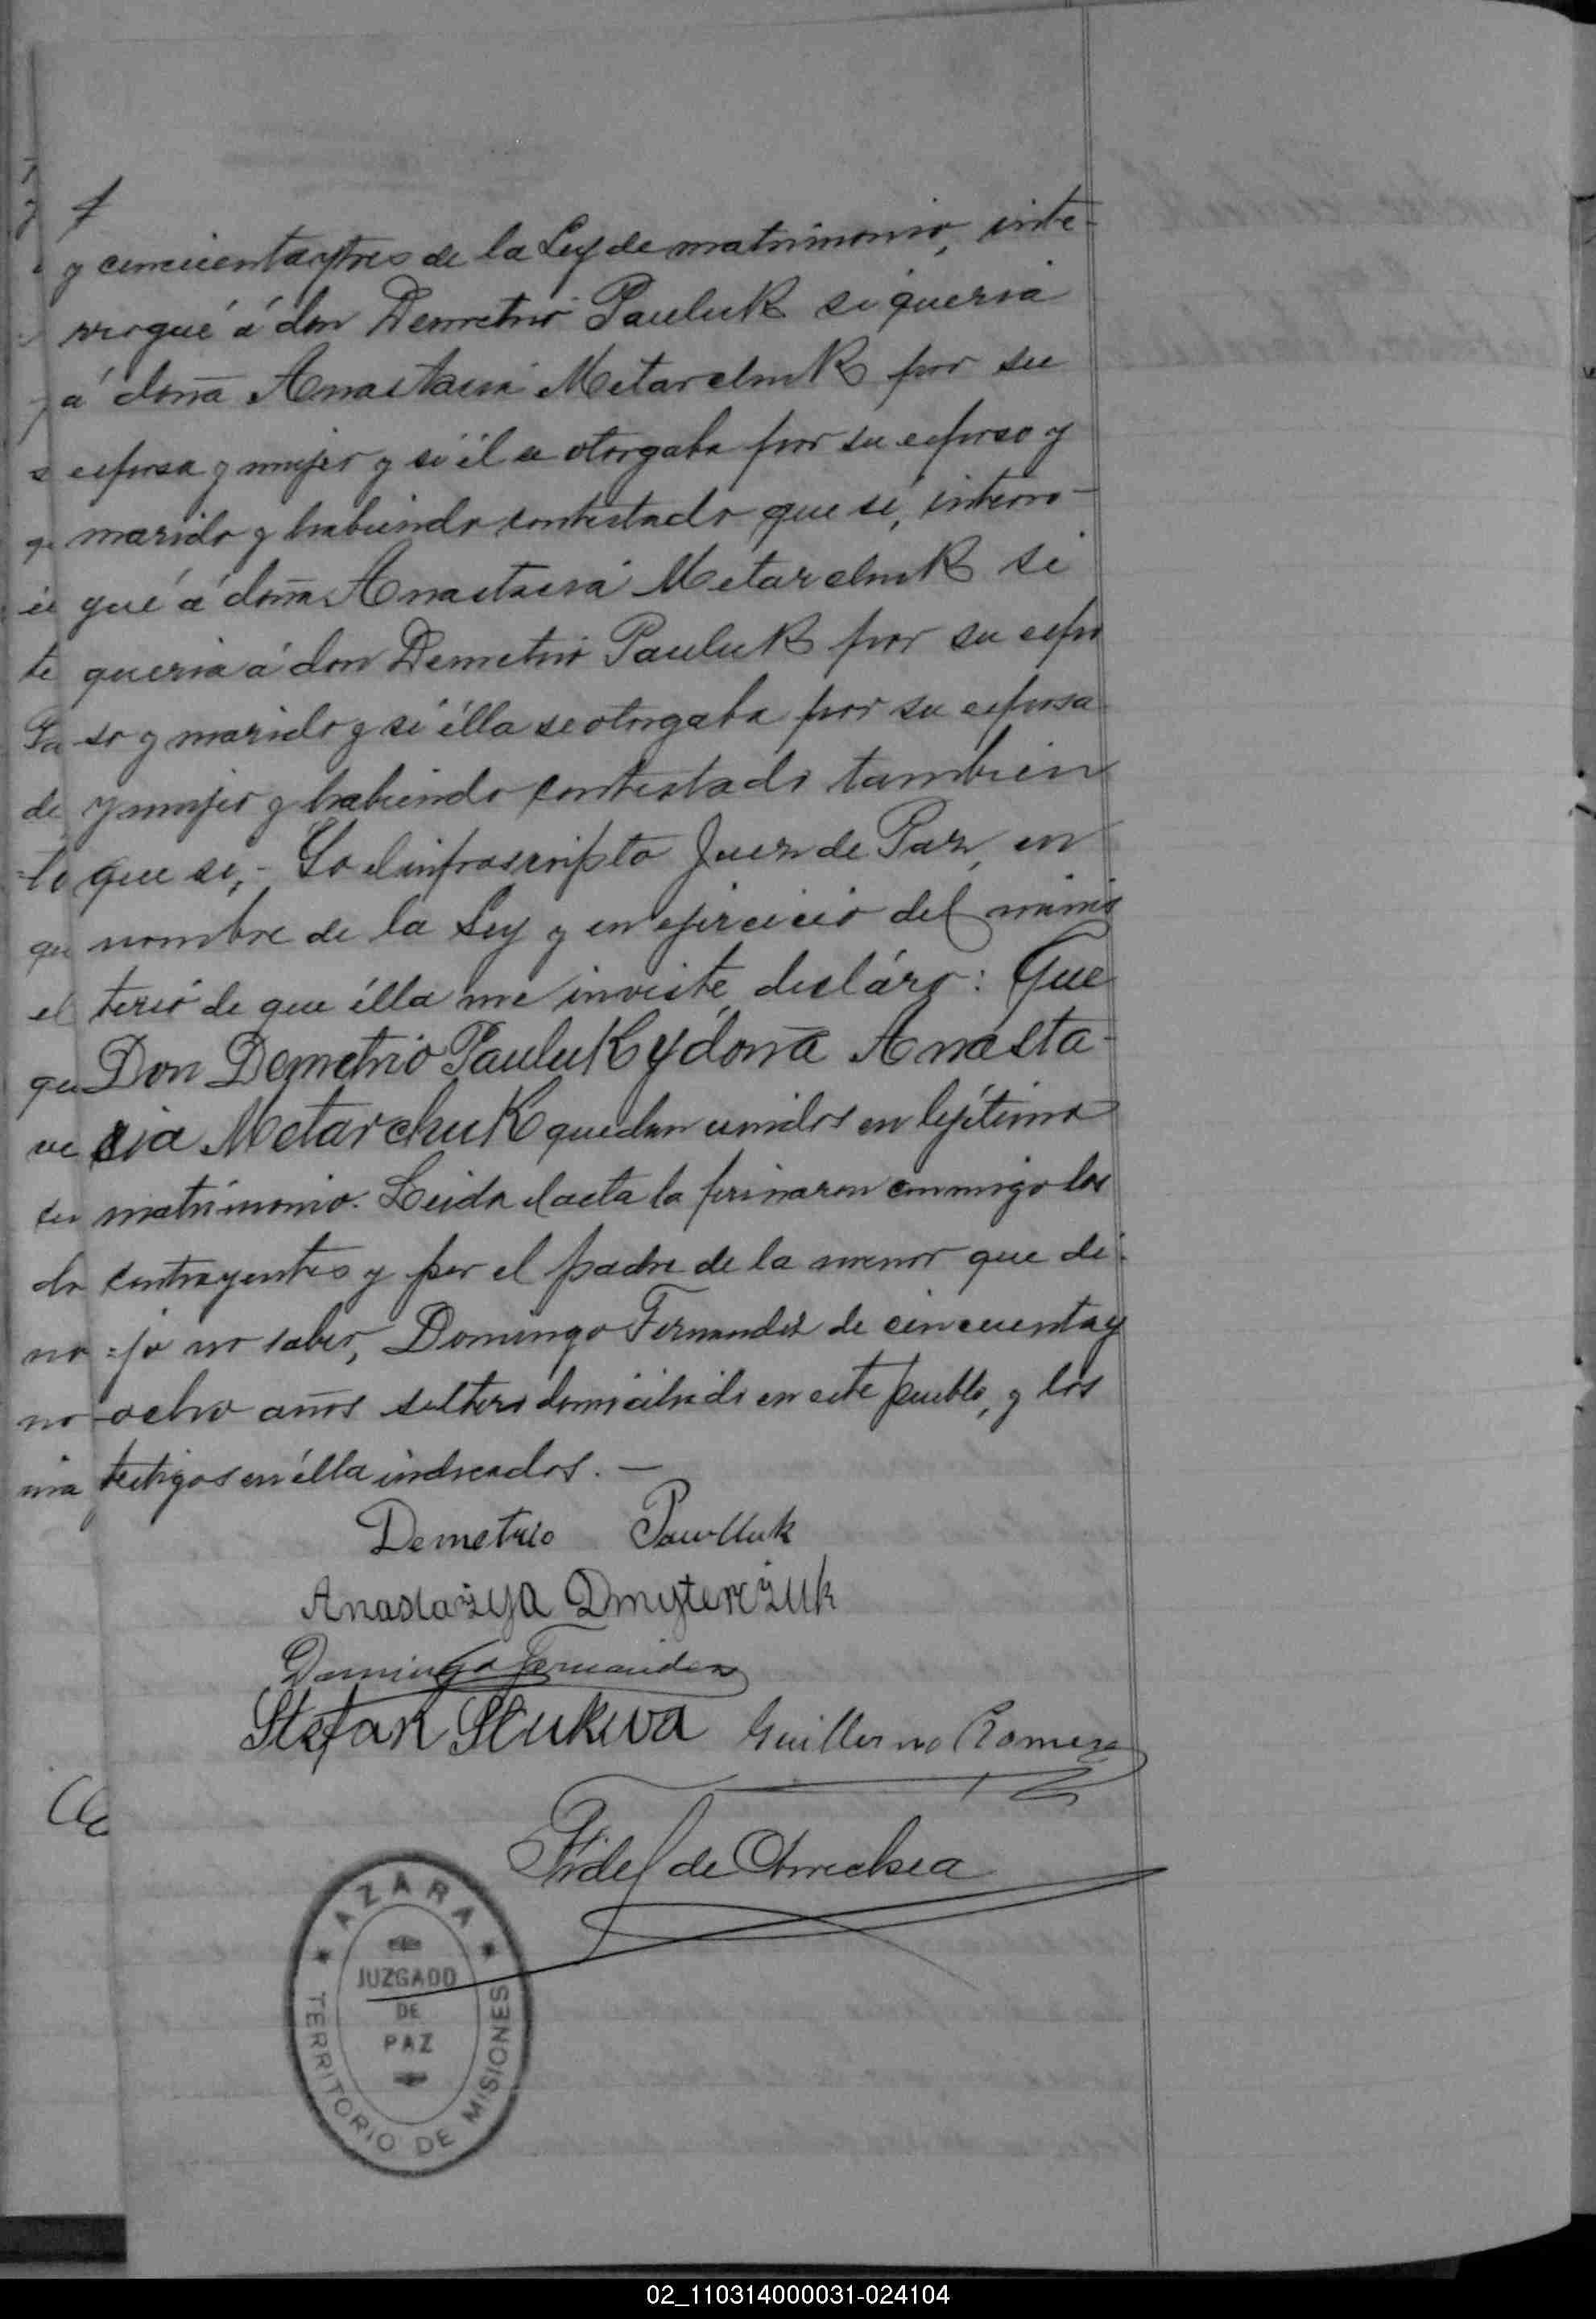 y cincuentaytres de la Ley de matrimonio, inte-
rrogué á don Demetrio Pauluk si queria
á doña Anastacia Metarchuk por su
esposa y mujer y si él se otorgaba por su esposo y
marido y habiendo contestado que sí, interro-
gué á doña Anastasia Metarchuk si
queria á don Demetrio Pauluk por su espo
so y marido y si élla se otorgaba por su esposa
y mujer y habiendo contestado tambien
que si,- Yo el infrascripto Juez de Paz, en
nombre de la Ley y en ejercicio del minis
terio de que élla me inviste, decláro: Que
Don Demetrio Pauluk y doña Anasta-
sia Metarchuk quedan unidos en lejítimo
matrimonio. Leida el acta la firmaron conmigo los
contrayentes y por el padre de la menor que di-
jo no saber, Domingo Fernandez de cincuenta y
ocho años soltero domiciliado en este pueblo, y los
testigos en élla indicados. —
Demetrio Pawlluk
Anastazya Dmyterczuk
Domingo Fernandez
Stefan Stukwa Guillermo Romero
Fidel de Arrechea
AZARA
JUZGADO
DE
PAZ
TERRITORIO DE MISIONES
02_110314000031-024104